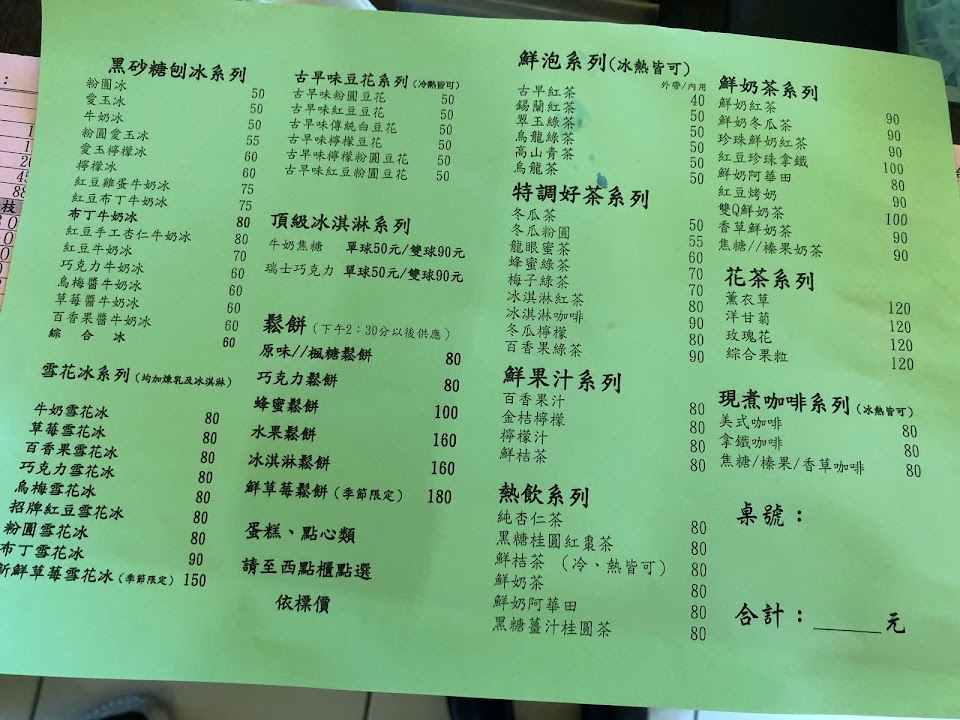 黑砂糖刨冰系列
粉圓冰 50
愛玉冰 50
牛奶冰 50
粉圓愛玉冰 55
愛玉檸檬冰 60
檸檬冰 60
紅豆雞蛋牛奶冰 75
紅豆布丁牛奶冰 75
布丁牛奶冰 80
紅豆手工杏仁牛奶冰 80
紅豆牛奶冰 70
巧克力牛奶冰 60
烏梅醬牛奶冰 60
草莓醬牛奶冰 60
百香果醬牛奶冰 60
綜合冰 60
雪花冰系列(均加煉乳及冰淇淋)
牛奶雪花冰 80
草莓雪花冰 80
百香果雪花冰 80
巧克力雪花冰 80
烏梅雪花冰 80
招牌紅豆雪花冰 80
粉圓雪花冰 80
布丁雪花冰 90
新鮮草莓雪花冰(季節限定) 150
古早味豆花系列(冷熱皆可)
古早味粉圓豆花 50
古早味紅豆豆花 50
古早味傳統白豆花 50
古早味檸檬豆花 50
古早味檸檬粉圓豆花 50
古早味紅豆粉圓豆花 50
頂級冰淇淋系列
牛奶焦糖 單球50元/雙球90元
瑞士巧克力 單球50元/雙球90元
鬆餅(下午2：30分以後供應)
原味//楓糖鬆餅 80
巧克力鬆餅 80
蜂蜜鬆餅 100
水果鬆餅 160
冰淇淋鬆餅 160
鮮草莓鬆餅(季節限定) 180
蛋糕、點心類
請至西點櫃點選
依標價
鮮泡系列(冰熱皆可)
外帶/內用
古早紅茶 40
錫蘭紅茶 50
翠玉綠茶 50
烏龍綠茶 50
高山青茶 50
烏龍茶 50
特調好茶系列
冬瓜茶 50
冬瓜粉圓 55
龍眼蜜茶 60
蜂蜜綠茶 70
梅子綠茶 70
冰淇淋紅茶 80
冰淇淋咖啡 90
冬瓜檸檬 80
百香果綠茶 90
鮮果汁系列
百香果汁 80
金桔檸檬 80
檸檬汁 80
鮮桔茶 80
熱飲系列
純杏仁茶 80
黑糖桂圓紅棗茶 80
鮮桔茶 (冷、熱皆可) 80
鮮奶茶 80
鮮奶阿華田 80
黑糖薑汁桂圓茶 80
鮮奶茶系列
鮮奶紅茶 90
鮮奶冬瓜茶 90
珍珠鮮奶紅茶 90
紅豆珍珠拿鐵 100
鮮奶阿華田 80
紅豆烤奶 90
雙Q鮮奶茶 100
香草鮮奶茶 90
焦糖//榛果奶茶 90
花茶系列
薰衣草 120
洋甘菊 120
玫瑰花 120
綜合果粒 120
現煮咖啡系列(冰熱皆可)
美式咖啡 80
拿鐵咖啡 80
焦糖/榛果/香草咖啡 80
桌號：
合計：______元